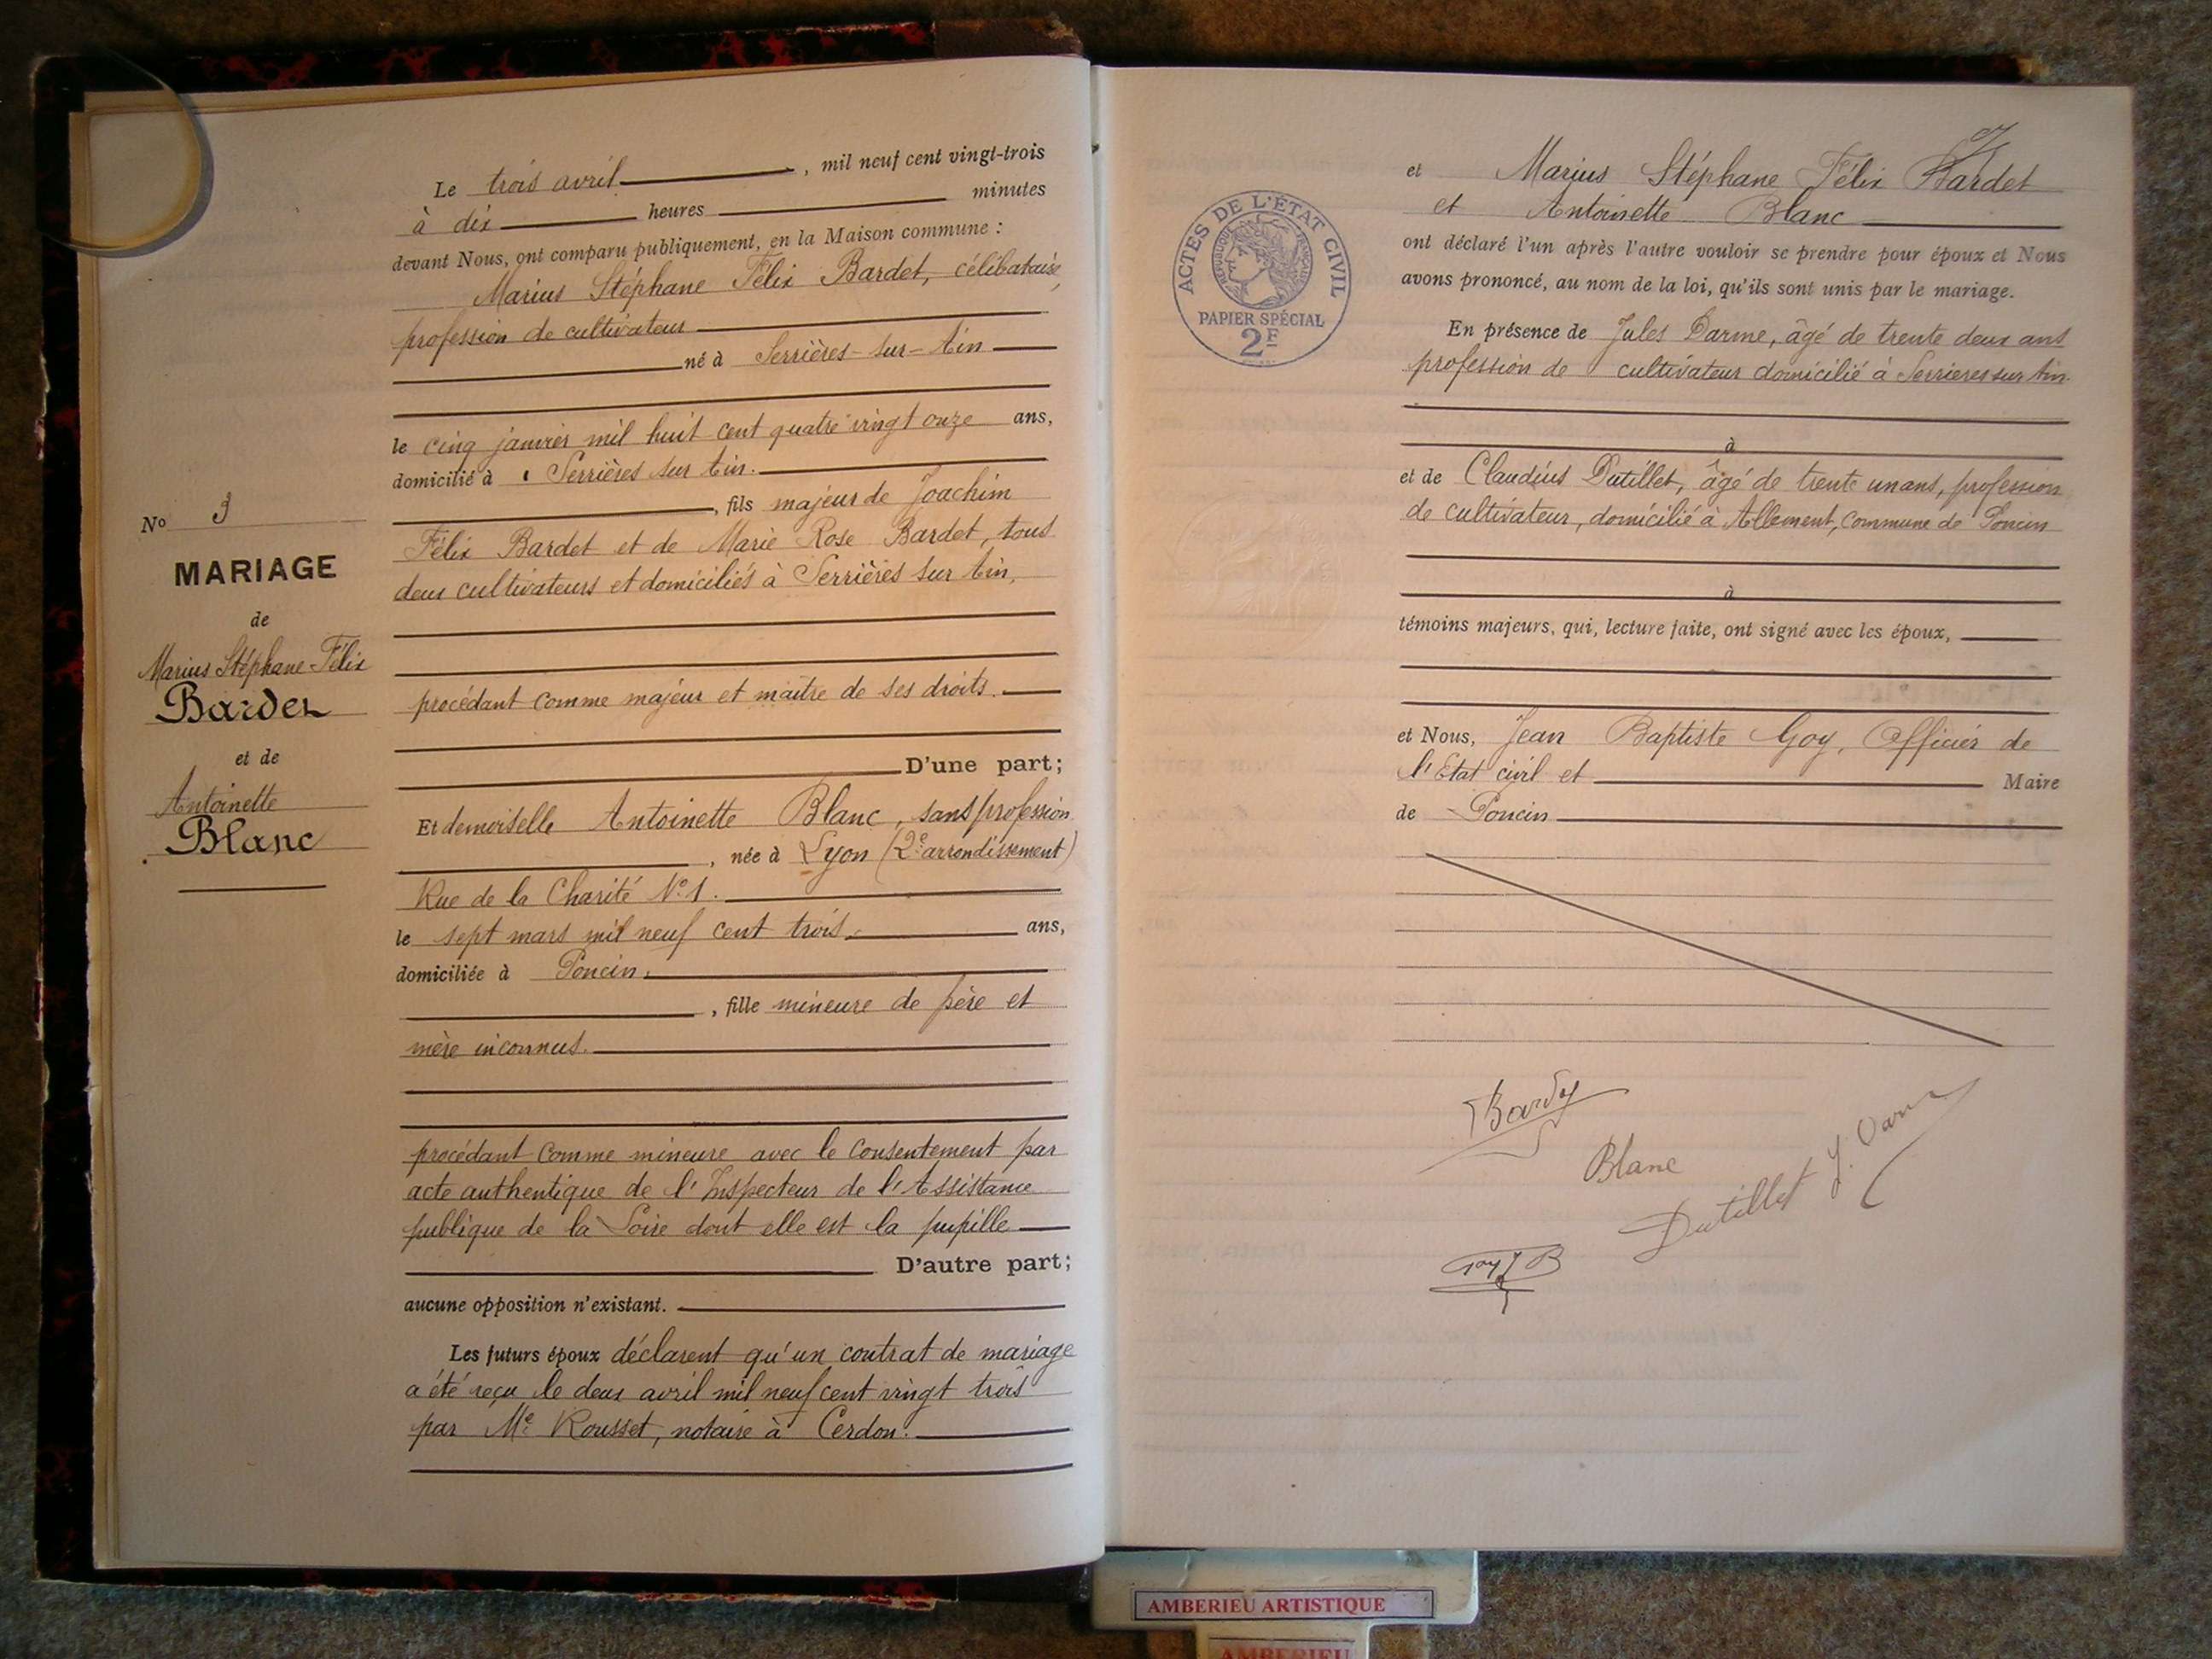 N° 3
MARIAGE
de
Marius Stéphane-Félix
Bardet
et de
Antoinette
Blanc
Le trois avril, mil neuf cent vingt-trois
à dix heures minutes
devant Nous, ont comparu publiquement, en la Maison commune :
Marius Stéphane Félix Bardet, célibataire,
profession de cultivateur
né à Serrières-sur-Ain
le cinq janvier mil huit cent quatre vingt onze ans,
domicilié à Serrières sur Ain.
, fils majeur de Joachim
Félix Bardet et de Marie Rose Bardet, tous
deux cultivateurs et domiciliés à Serrières sur Ain,
procédant comme majeur et maître de ses droits.
D'une part;
Et demoiselle Antoinette Blanc, sans profession
, née à Lyon (2e arrondissement)
Rue de la Charité N° 1.
le sept mars mil neuf cent trois, ans,
domiciliée à Poncin,
, fille mineure de père et
mère inconnus.
procédant comme mineure avec le consentement par
acte authentique de l'Inspecteur de l'Assistance
publique de la Loire dont elle est la pupille
D'autre part;
aucune opposition n'existant.
Les futurs époux déclarent qu'un contrat de mariage
a été reçu le deux avril mil neuf cent vingt trois
par Me Rousset, notaire à Cerdon.
ACTES DE L'ÉTAT CIVIL
RÉPUBLIQUE FRANÇAISE
PAPIER SPÉCIAL
2F
et Marius Stéphane Félix Bardet
et Antoinette Blanc
ont déclaré l'un après l'autre vouloir se prendre pour époux et Nous
avons prononcé, au nom de la loi, qu'ils sont unis par le mariage.
En présence de Jules Darme, âgé de trente deux ans
profession de cultivateur domicilié à Serrieres sur Ain.
à
et de Claudius Dutillet, âgé de trente un ans, profession
de cultivateur, domicilié à Allement, commune de Poncin
à
témoins majeurs, qui, lecture faite, ont signé avec les époux,
et Nous, Jean Baptiste Goy, Officier de
l'Etat civil et Maire
de Poncin
Bardet
Blanc
Dutillet J. Darme
Goy J B
AMBERIEU ARTISTIQUE
AMBERIEU